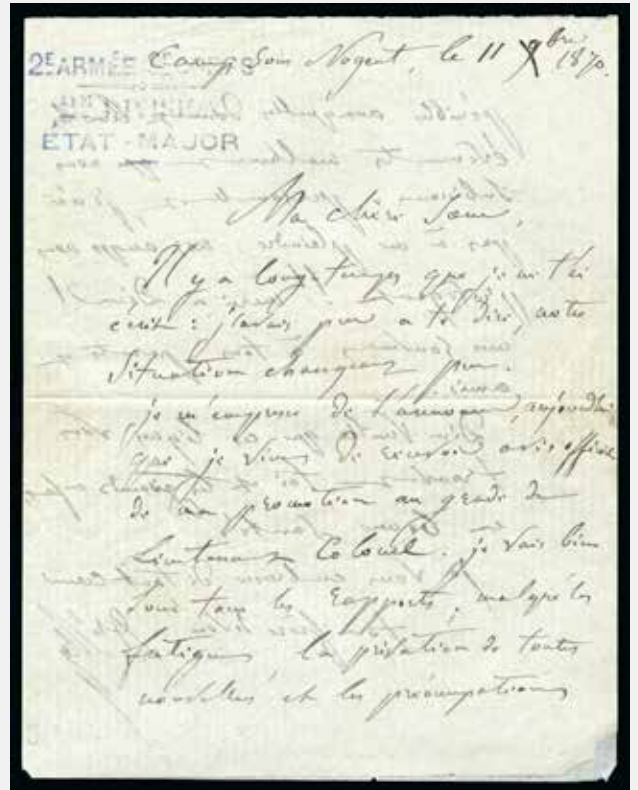 2E ARMÉE
ÉTAT-MAJOR
Camp sous Nogent, le 11 Xbre 1870.
Ma chère Sœur,
Il y a longtemps que je ne t'ai
écrit : j'avais peu a te dire, notre
situation changeant peu.
je m'empresse de t'annoncer, aujourdhui
que je viens de recevoir avis officiel
de ma promotion au grade de
Lieutenant Colonel. je vais bien
sous tous les rapports, malgré les
fatigues la privation de toutes
nouvelles et les préoccupations